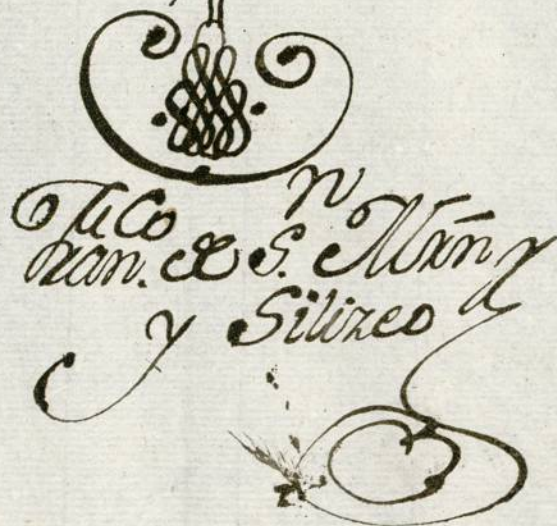 Fran.co de S.n Mrñn
y Silizeo